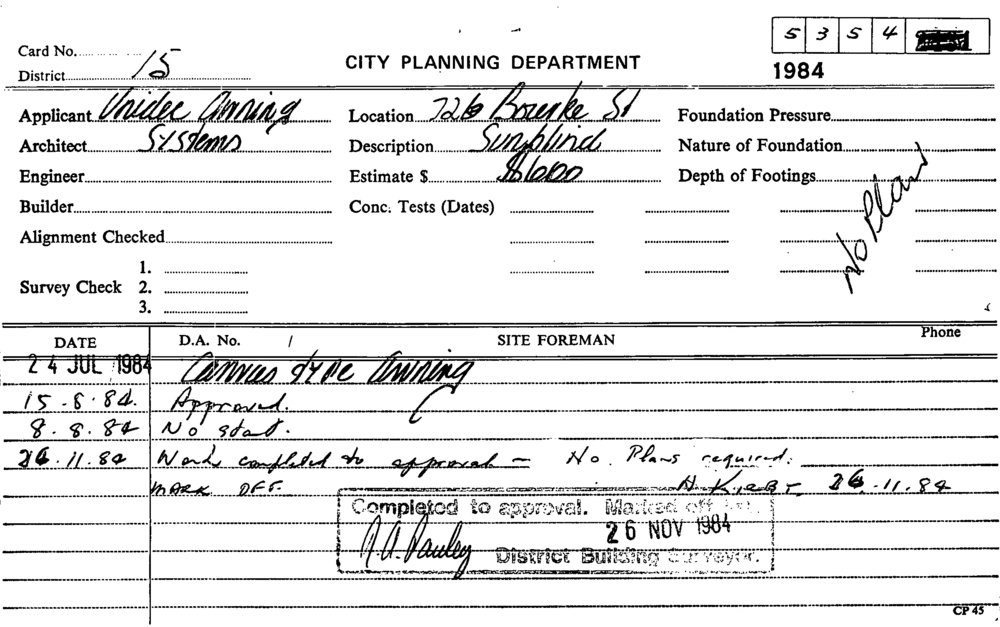 5 3 5 4
Card No.
District 15
CITY PLANNING DEPARTMENT
1984
Applicant Unidec Awning
Location 726 Bourke St
Foundation Pressure
Architect Systems
Description Sunblind
Nature of Foundation
Engineer
Estimate $ $1600
Depth of Footings
No Plans
Builder
Conc. Tests (Dates)
Alignment Checked
1.
Survey Check 2.
3.
DATE D.A. No. / SITE FOREMAN Phone
24 JUL 1984 Canvas type Awning
15.8.84. Approved.
8.8.84 No start.
26.11.84 Work completed to approval — No Plans required.
MARK OFF. 26.11.84
Completed to approval. Marked off
26 NOV 1984
District Building Surveyor.
CP 45